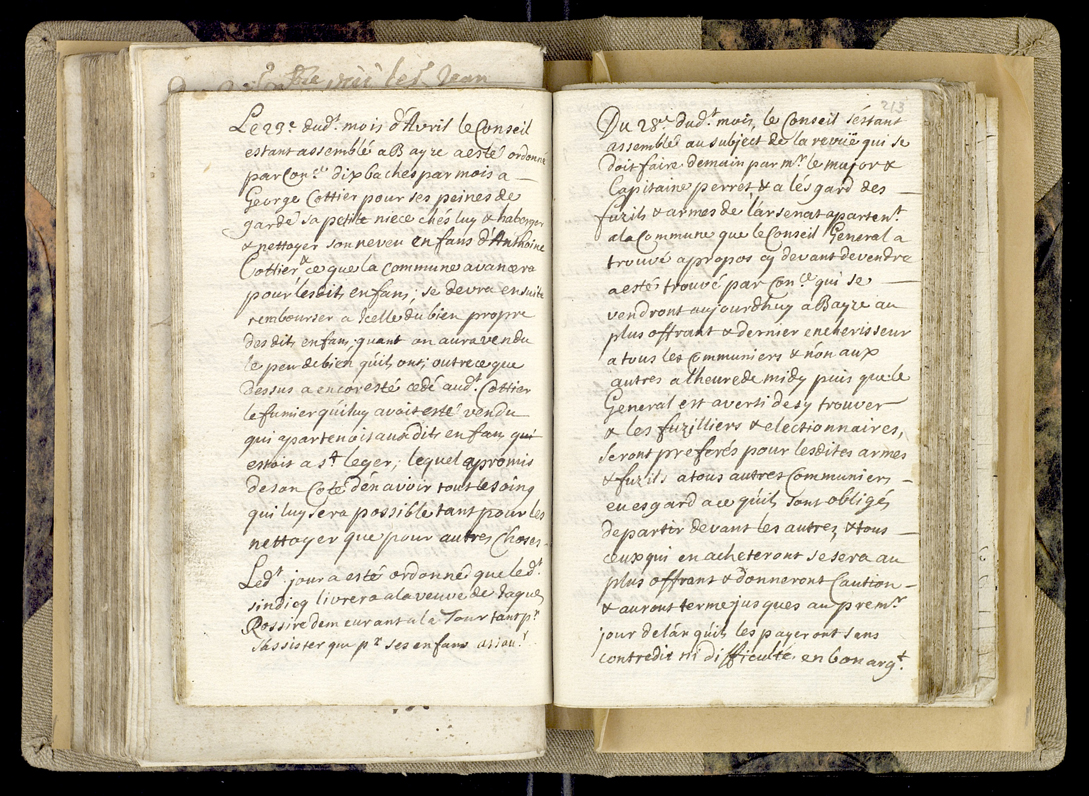 Jean
Le 29e dudt. mois d'Avril le Conseil
estant assemblé a Bayze a esté ordonné
par Conce. dix baches par mois a —
George Cottier pour ses peines de
garde sa petite niece chés luy & haberger
& nettoyer son neveu enfans d'Anthoine
Cottier & ce que la commune avancera
pour lesdits enfans, se devra ensuite
rembourser a Icelle du bien propre
desdits enfans, quant on aura vendu
le peu de bien quils ont; outre ce que
dessus a encor esté cedé audt. Cottier
le fumier qui luy avoit esté vendu
qui apartenoit auxdits enfans qui
estoit a st leger; lequel a promis
de son Coté d'en avoir tout le soing
qui luy sera possible tant pour les
nettoyer que pour autres Choses.
Ledt. jour a esté ordonné que ledt.
sindicq livrera a la veuve de Jaques
Rossire demeurant a la Tour tant pr.
s'assister que pr. ses enfans
213
Du 28me dudt. mois, le Conseil s'estant
assemblé au subject de la reveüe qui se
doit faire demain par mr. le major &
Capitaine perret, & a lésgard des —
fuzils & armes de l'arsenat apartent.
a la Commune que le Conseil General a
trouvé a propos cy devant de vendre
a esté trouvé par Conce. qui se —
vendront aujourdhuy a Bayze au
plus offrant & dernier encherisseur
a tous les Communiers & non aux
autres a lheure de midy puis que le
General est averti de s'y trouver
& les fuzilliers & eléctionnaires,
seront preferés pour lesdites armes
& fuzils a tous autres Communiers —
eu esgard a ce quils sont obligés
de partir devant les autres, & tous —
ceux qui en acheteront se sera au
plus offrant & donneront Caution —
& auront terme jusques au premr.
jour de lán quils les payeront sens
contredit ni difficulté en bon argt.